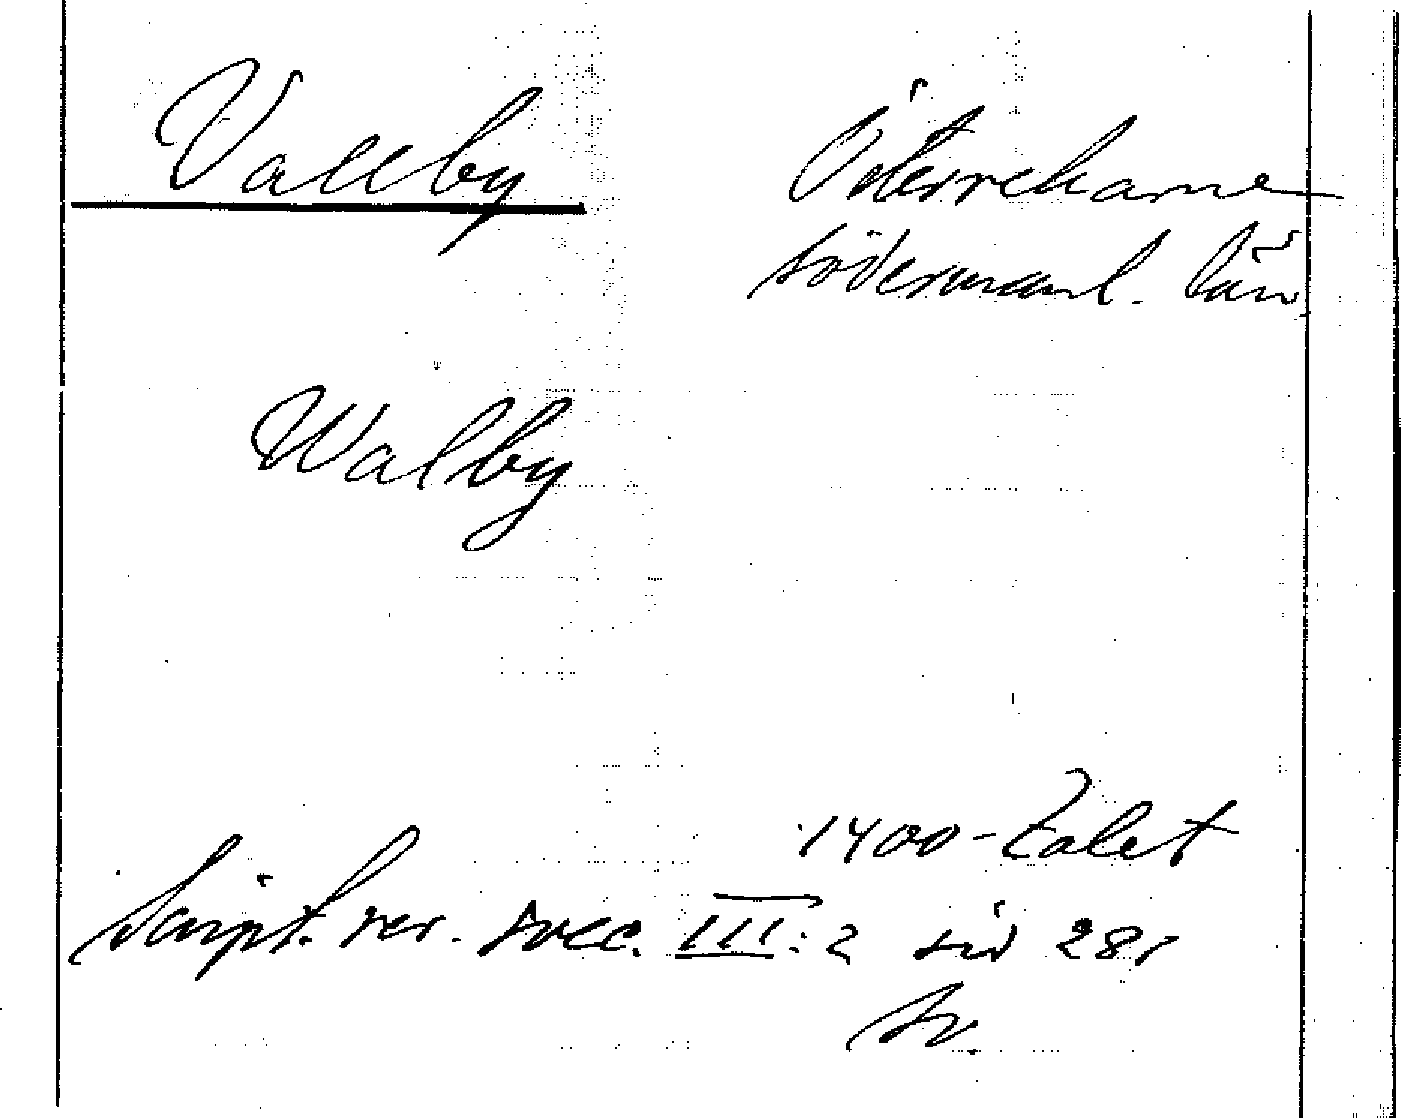 Vallby Österrekarne
Södermanl. län
Walby
1400-talet
Script. rer. svec. III:2 sid 281
Sv.